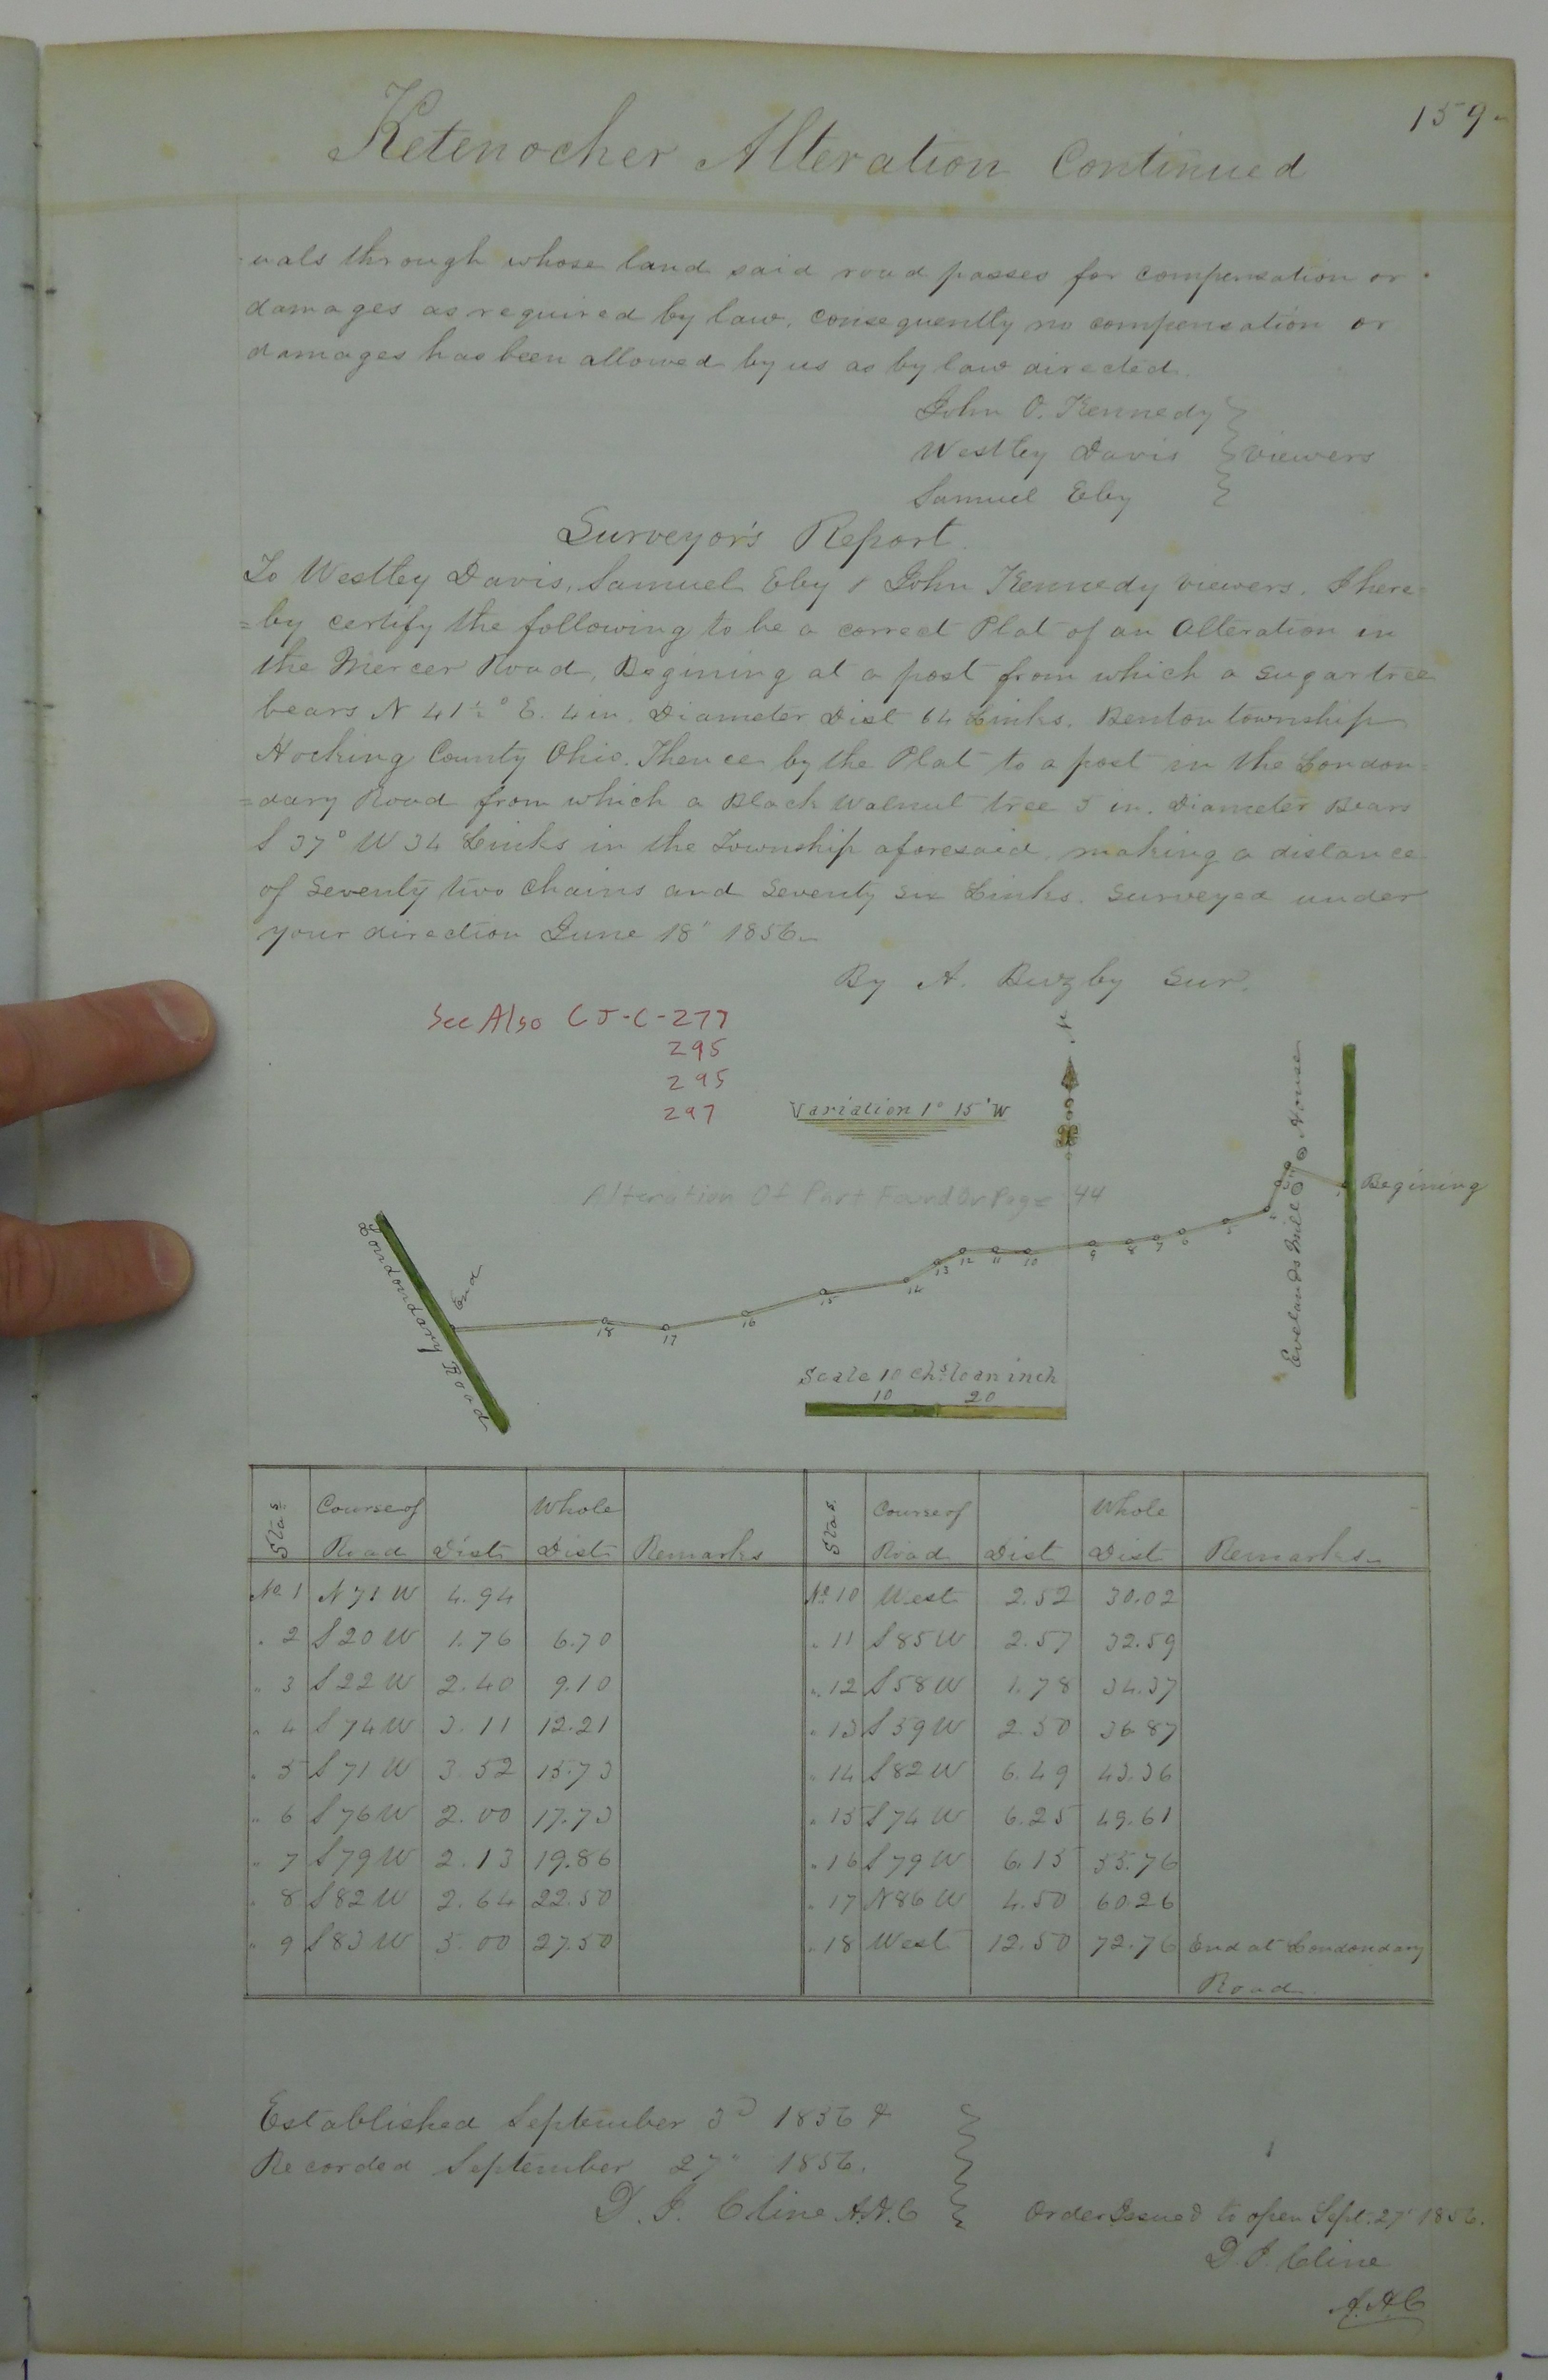 159-
Ketenocher Alteration Continued
uals through whose land said road passes for compensation or
damages as required by law, consequently no compensation or
damages has been allowed by us as by law directed.
John O. Kennedy
Westley Davis } viewers
Samuel Eby
Surveyor's Report
To Westley Davis, Samuel Eby & John Kennedy viewers. I here=
=by certify the following to be a correct Plat of an Alteration in
the Mercer Road, Begining at a post from which a sugar tree
bears N 41½° E. 4 in. Diameter Dist 64 Links. Benton township
Hocking County Ohio. Thence by the Plat to a post in the London=
=dary Road from which a Black Walnut tree 5 in. Diameter Bears
S 37° W 34 Links in the Township aforesaid, making a distance
of Seventy two Chains and Seventy six Links. Surveyed under
your direction June 18" 1856.
By A. Buzby Sur.
See Also CJ-C-277
295
295
297
N
Variation 1° 15' W
Alteration Of Part Found On Page 44
Evelands Mill House
Begining
Londondary Road
End
18 17 16 15 14 13 12 11 10 9 8 7 6 5
Scale 10 chs to an inch
10 20
Stas. Course of Road Dist Whole Dist Remarks Stas. Course of Road Dist Whole Dist Remarks
No 1 N 71 W 4.94 No 10 West 2.52 30.02
" 2 S 20 W 1.76 6.70 " 11 S 85 W 2.57 32.59
" 3 S 22 W 2.40 9.10 " 12 S 58 W 1.78 34.37
" 4 S 74 W 3.11 12.21 " 13 S 59 W 2.50 36.87
" 5 S 71 W 3.52 15.73 " 14 S 82 W 6.49 43.36
" 6 S 76 W 2.00 17.73 " 15 S 74 W 6.25 49.61
" 7 S 79 W 2.13 19.86 " 16 S 79 W 6.15 55.76
" 8 S 82 W 2.64 22.50 " 17 N 86 W 4.50 60.26
" 9 S 83 W 5.00 27.50 " 18 West 12.50 72.76 End at Londondary
Road
Established September 3d 1856 &
Recorded September 27" 1856.
D. J. Cline A.H.C
Order Issued to open Sept. 27" 1856.
D. J. Cline
A.H.C